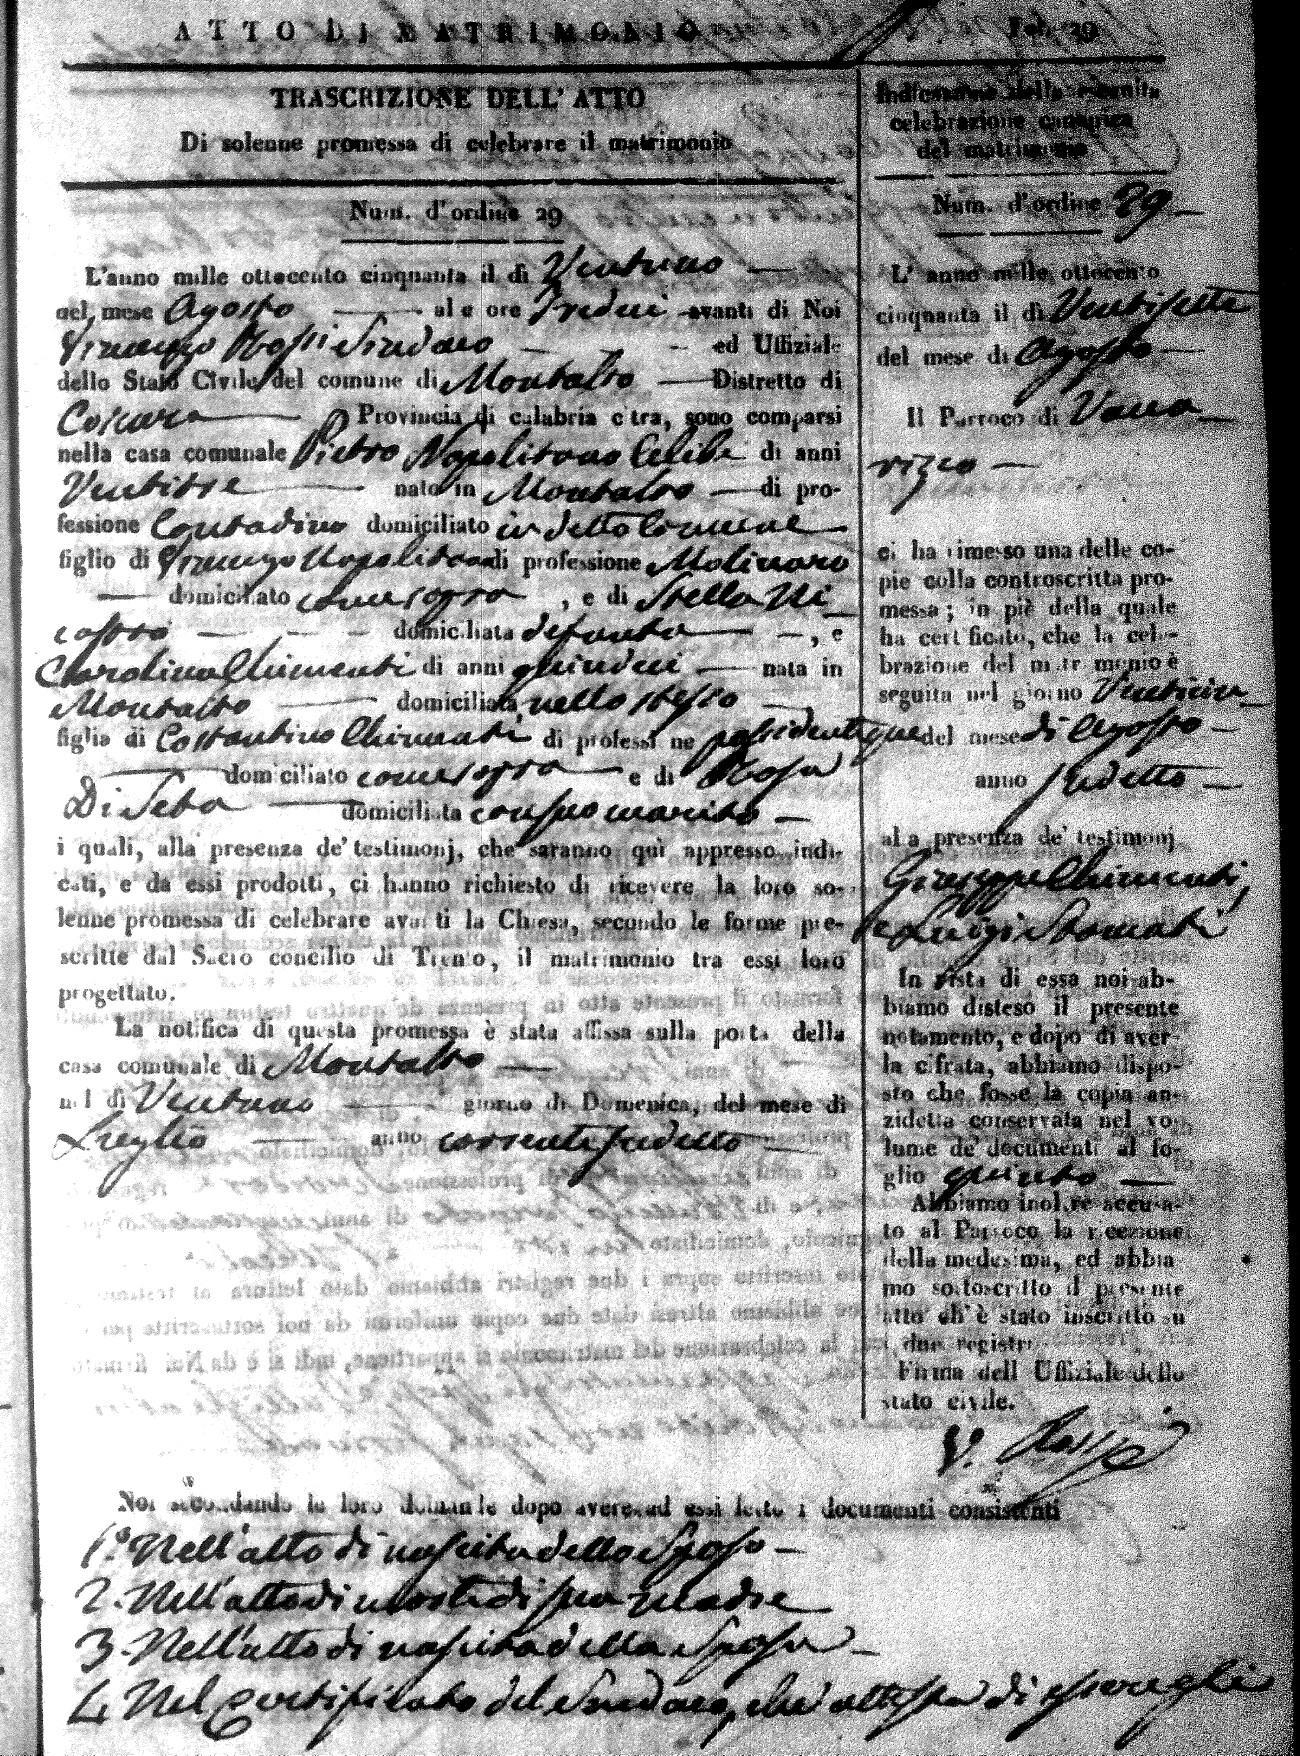 ATTO DI MATRIMONIO
Fol. 29
TRASCRIZIONE DELL' ATTO
Di solenne promessa di celebrare il matrimonio
Num. d'ordine 29
L'anno mille ottocento cinquanta il di Ventuno
nel mese Agosto alle ore Tredici avanti di Noi
Vincenzo Rossi Sindaco ed Uffiziale
dello Stato Civile del comune di Montalto Distretto di
Cosenza Provincia di calabria citra, sono comparsi
nella casa comunale Pietro Napolitano Celibe di anni
Ventitre nato in Montalto di pro-
fessione Contadino domiciliato in detto Comune
figlio di Vincenzo Napolitano di professione Molinaro
domiciliato come sopra, e di Stella Ni
castro domiciliata defunta, e
Carolina Chimenti di anni quindici nata in
Montalto domiciliata nello stesso
figlia di Costantino Chimenti di professione possidente
domiciliato come sopra e di Rosa
Di Seta domiciliata con suo marito
i quali, alla presenza de' testimonj, che saranno quì appresso indi-
cati, e da essi prodotti, ci hanno richiesto di ricevere la loro so-
lenne promessa di celebrare avanti la Chiesa, secondo le forme pre-
scritte dal Sacro concilio di Trento, il matrimonio tra essi loro
progettato.
La notifica di questa promessa è stata affissa sulla porta della
casa comunale di Montalto
nel di Ventuno giorno di Domenica, del mese di
Luglio anno corrente sudetto
Indicazione della seguita
celebrazione canonica
del matrimonio
Num. d'ordine 29
L' anno mille ottocento
cinquanta il dì Ventisette
del mese di Agosto
Il Parroco di Vacca
rizzo
ci ha rimesso una delle co-
pie colla controscritta pro-
messa; in piè della quale
ha certificato, che la cele-
brazione del matrimonio è
seguita nel giorno Venticin
que del mese di Agosto
anno sudetto
alla presenza de' testimonj
Giuseppe Chimenti,
e Luigi
In vista di essa noi ab-
biamo disteso il presente
notamento, e dopo di aver-
la cifrata, abbiamo dispo-
sto che fosse la copia an-
zidetta conservata nel vo-
lume de' documenti al fo-
glio quinto
Abbiamo inoltre accusa-
to al Parroco la recezione
della medesima, ed abbia
mo sottoscritto il presente
atto ch' è stato inscritto su
i due registri
Firma dell Uffiziale dello
stato civile.
V. Rossi
Noi secondando le loro domande dopo avere ad essi letto i documenti consistenti
1.° Nell'atto di nascita dello Sposo
2. Nell'atto di morte di sua Madre
3. Nell'atto di nascita della Sposa
4. Nel Certificato del Sindaco, che attesta di essere gli